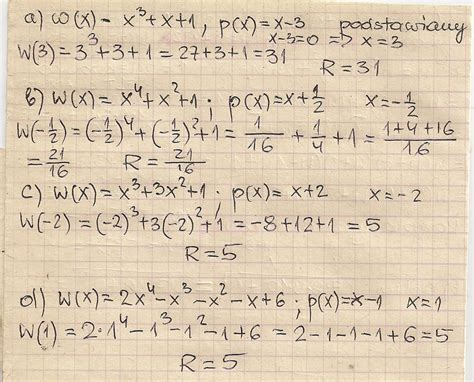 a) W(x) - x³+x+1, p(x)=x-3 podstawiamy
x-3=0 => x=3
W(3)=3³+3+1=27+3+1=31
R=31
b) W(x)=x⁴+x²+1; p(x)=x+1/2 x=-1/2
W(-1/2)=(-1/2)⁴+(-1/2)²+1=1/16+1/4+1=(1+4+16)/16
=21/16 R=21/16
c) W(x)=x³+3x²+1; p(x)=x+2 x=-2
W(-2)=(-2)³+3(-2)²+1=-8+12+1=5
R=5
d) W(x)=2x⁴-x³-x²-x+6; p(x)=x-1 x=1
W(1)=2·1⁴-1³-1²-1+6=2-1-1-1+6=5
R=5